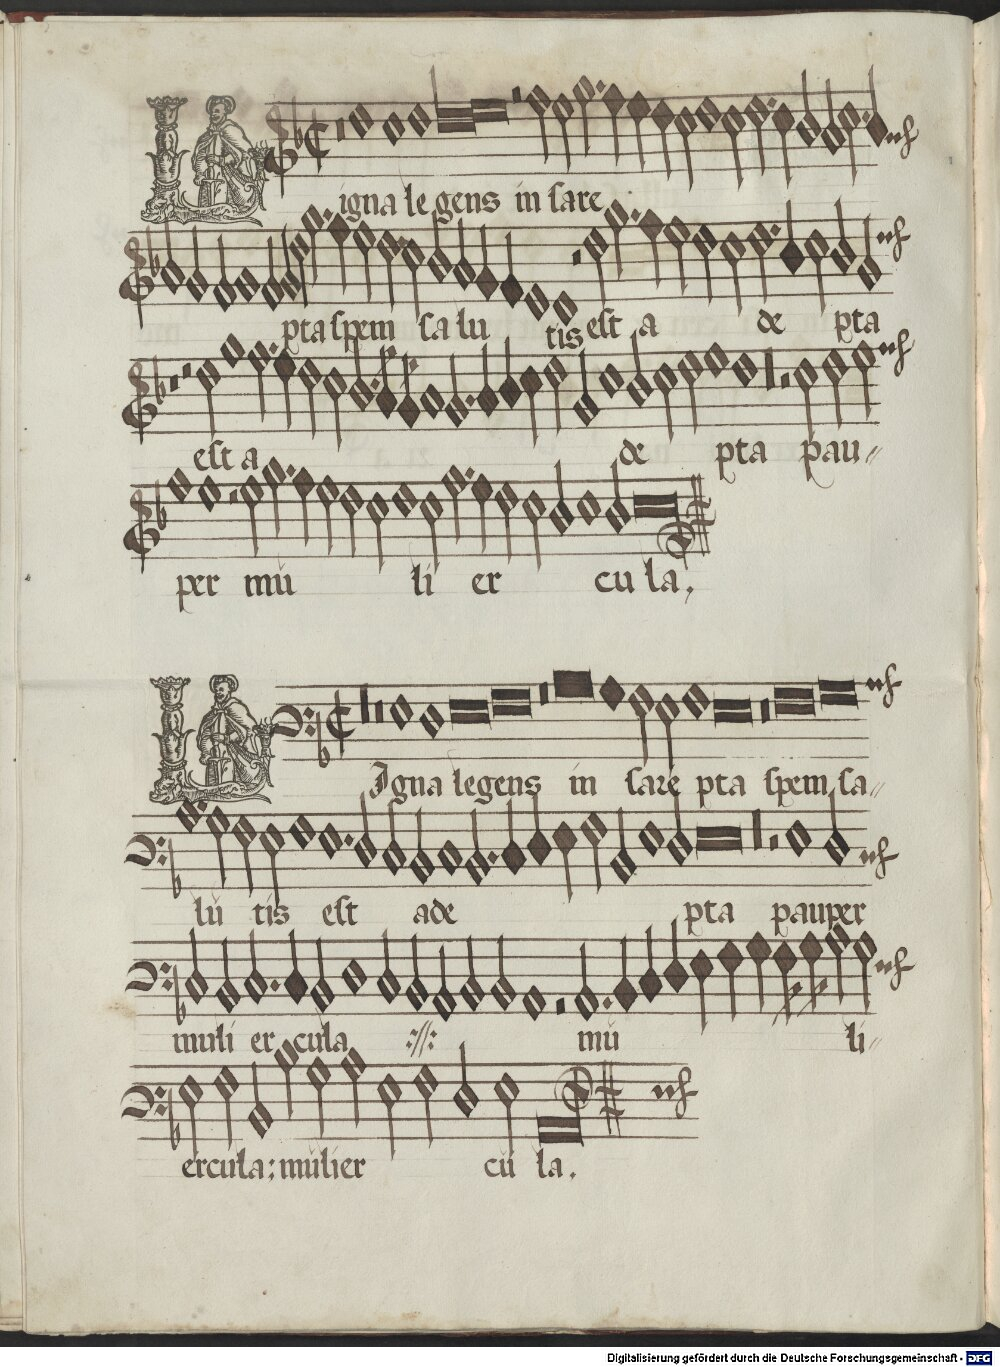 Ligna legens in sare
pta spem salu tis est a de pta
est a de pta pau
per mu li er cu la.
LIgna legens in sare pta spem sa
lu tis est ade pta pauper
muli er cula :||: mu li
ercula: mulier cu la.
Digitalisierung gefördert durch die Deutsche Forschungsgemeinschaft - DFG